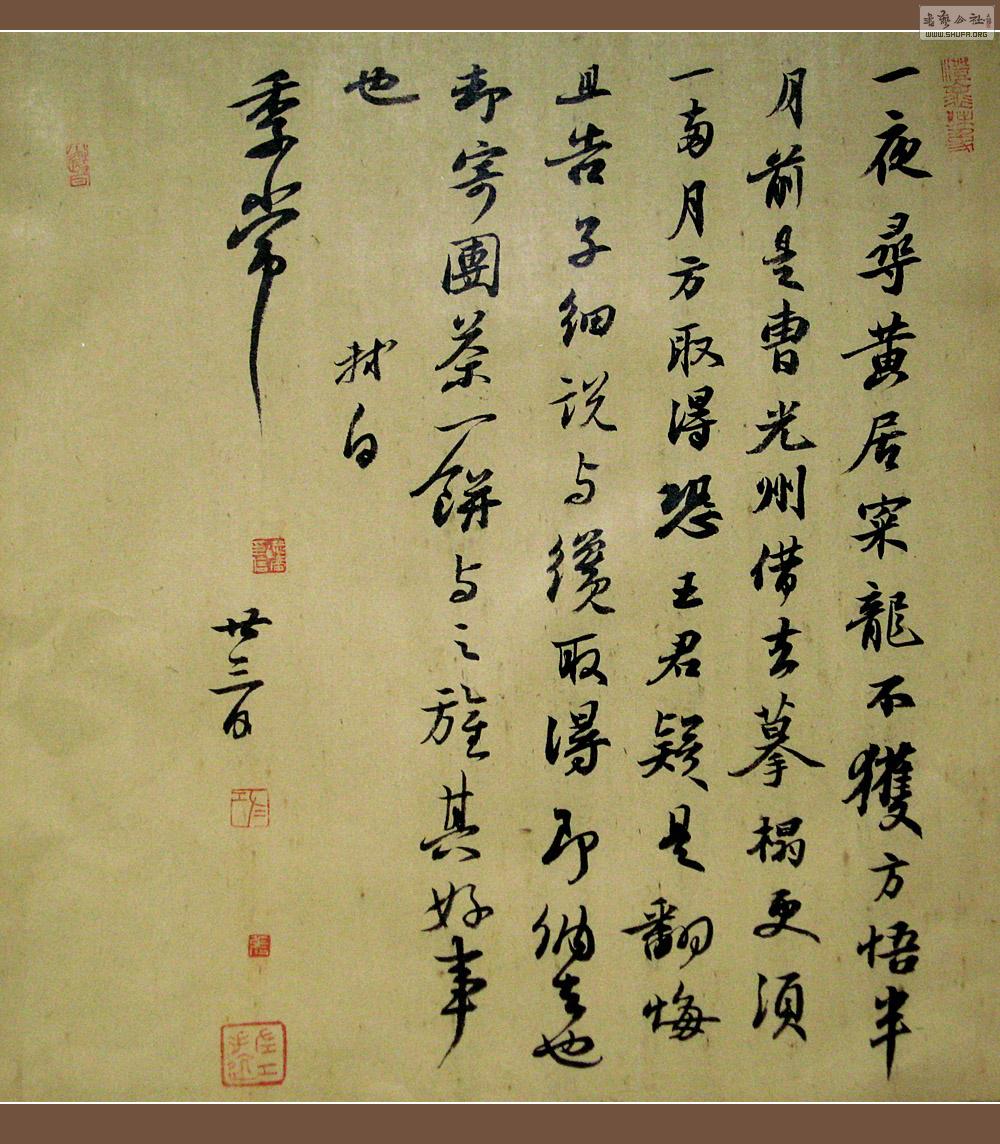 一夜尋黄居寀龍不獲方悟半
月前是曹光州借去摹搨更須
一兩月方取得恐王君疑是翻悔
且告子細説与纔取得即納去也
却寄團茶一餅与之旌其好事
也
軾白
季常
廿三日
WWW.SHUFA.ORG